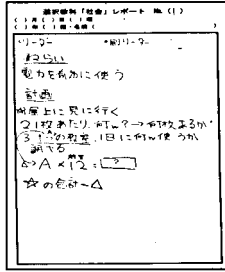 選択教科「社会」レポート No.( )
( )月( )日( )曜
( )年( )組・名前( )
・リーダー ・副リーダー
ねらい
電力を有効に使う
計画
屋上に見に行く
1枚あたり、何W?→何枚あるか
3つの教室、1日に何W使うか
調べる
⇔A×12=?
☆の合計−△